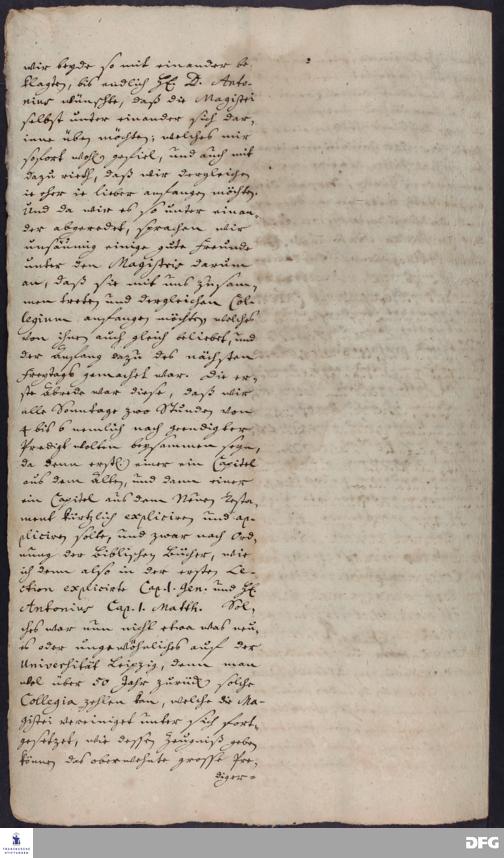 wir beyde so mit einander be
klagten, bis endlich H. D. Anto-
nius wünschte, daß die Magistri
selbst unter einander sich dar,
inne üben möchten; welches mir
sofort wohl gefiel, und auch mit
dazu rieth, daß wir dergleichen
ie eher ie lieber anfangen möchten.
Und da wir es so unter einan,
der abgeredet, sprachen wir
unsäumig einige gute Freunde
unter den Magistris darum
an, daß sie mit uns zusam,
men treten, und dergleichen Col-
legium anfangen möchten, welches
von ihnen auch gleich beliebet, und
der Anfang dazu des nächsten
Freytags gemachet war. Die er,
ste Abrede war diese, daß wir
alle Sonntage zwo Stunden von
4 bis 6 nemlich nach geendigter
Predigt wolten beysammen seyn,
da denn erstl. einer ein Capitel
aus dem Alten, und dann einer
ein Capitel aus dem Neuen Testa,
ment kürtzlich expliciren und ap-
pliciren solte, und zwar nach Ord,
nung der Biblischen Bücher, wie
ich denn also in der ersten Le-
ction explicirte Cap. 1. Gen. und H.
Antonius Cap. 1. Matth. Sol,
ches war nun nicht etwa was neu,
es oder ungewöhnliches auf der
Universität Leipzig, denn man
wol über 50 Jahr zurück solche
Collegia zehlen kan, welche die Ma-
gistri vereiniget unter sich fort,
gesetzet, wie dessen Zeugniß geben
können das oberwehnte grosse Pre,
diger-
FRANCKESCHE STIFTUNGEN
DFG